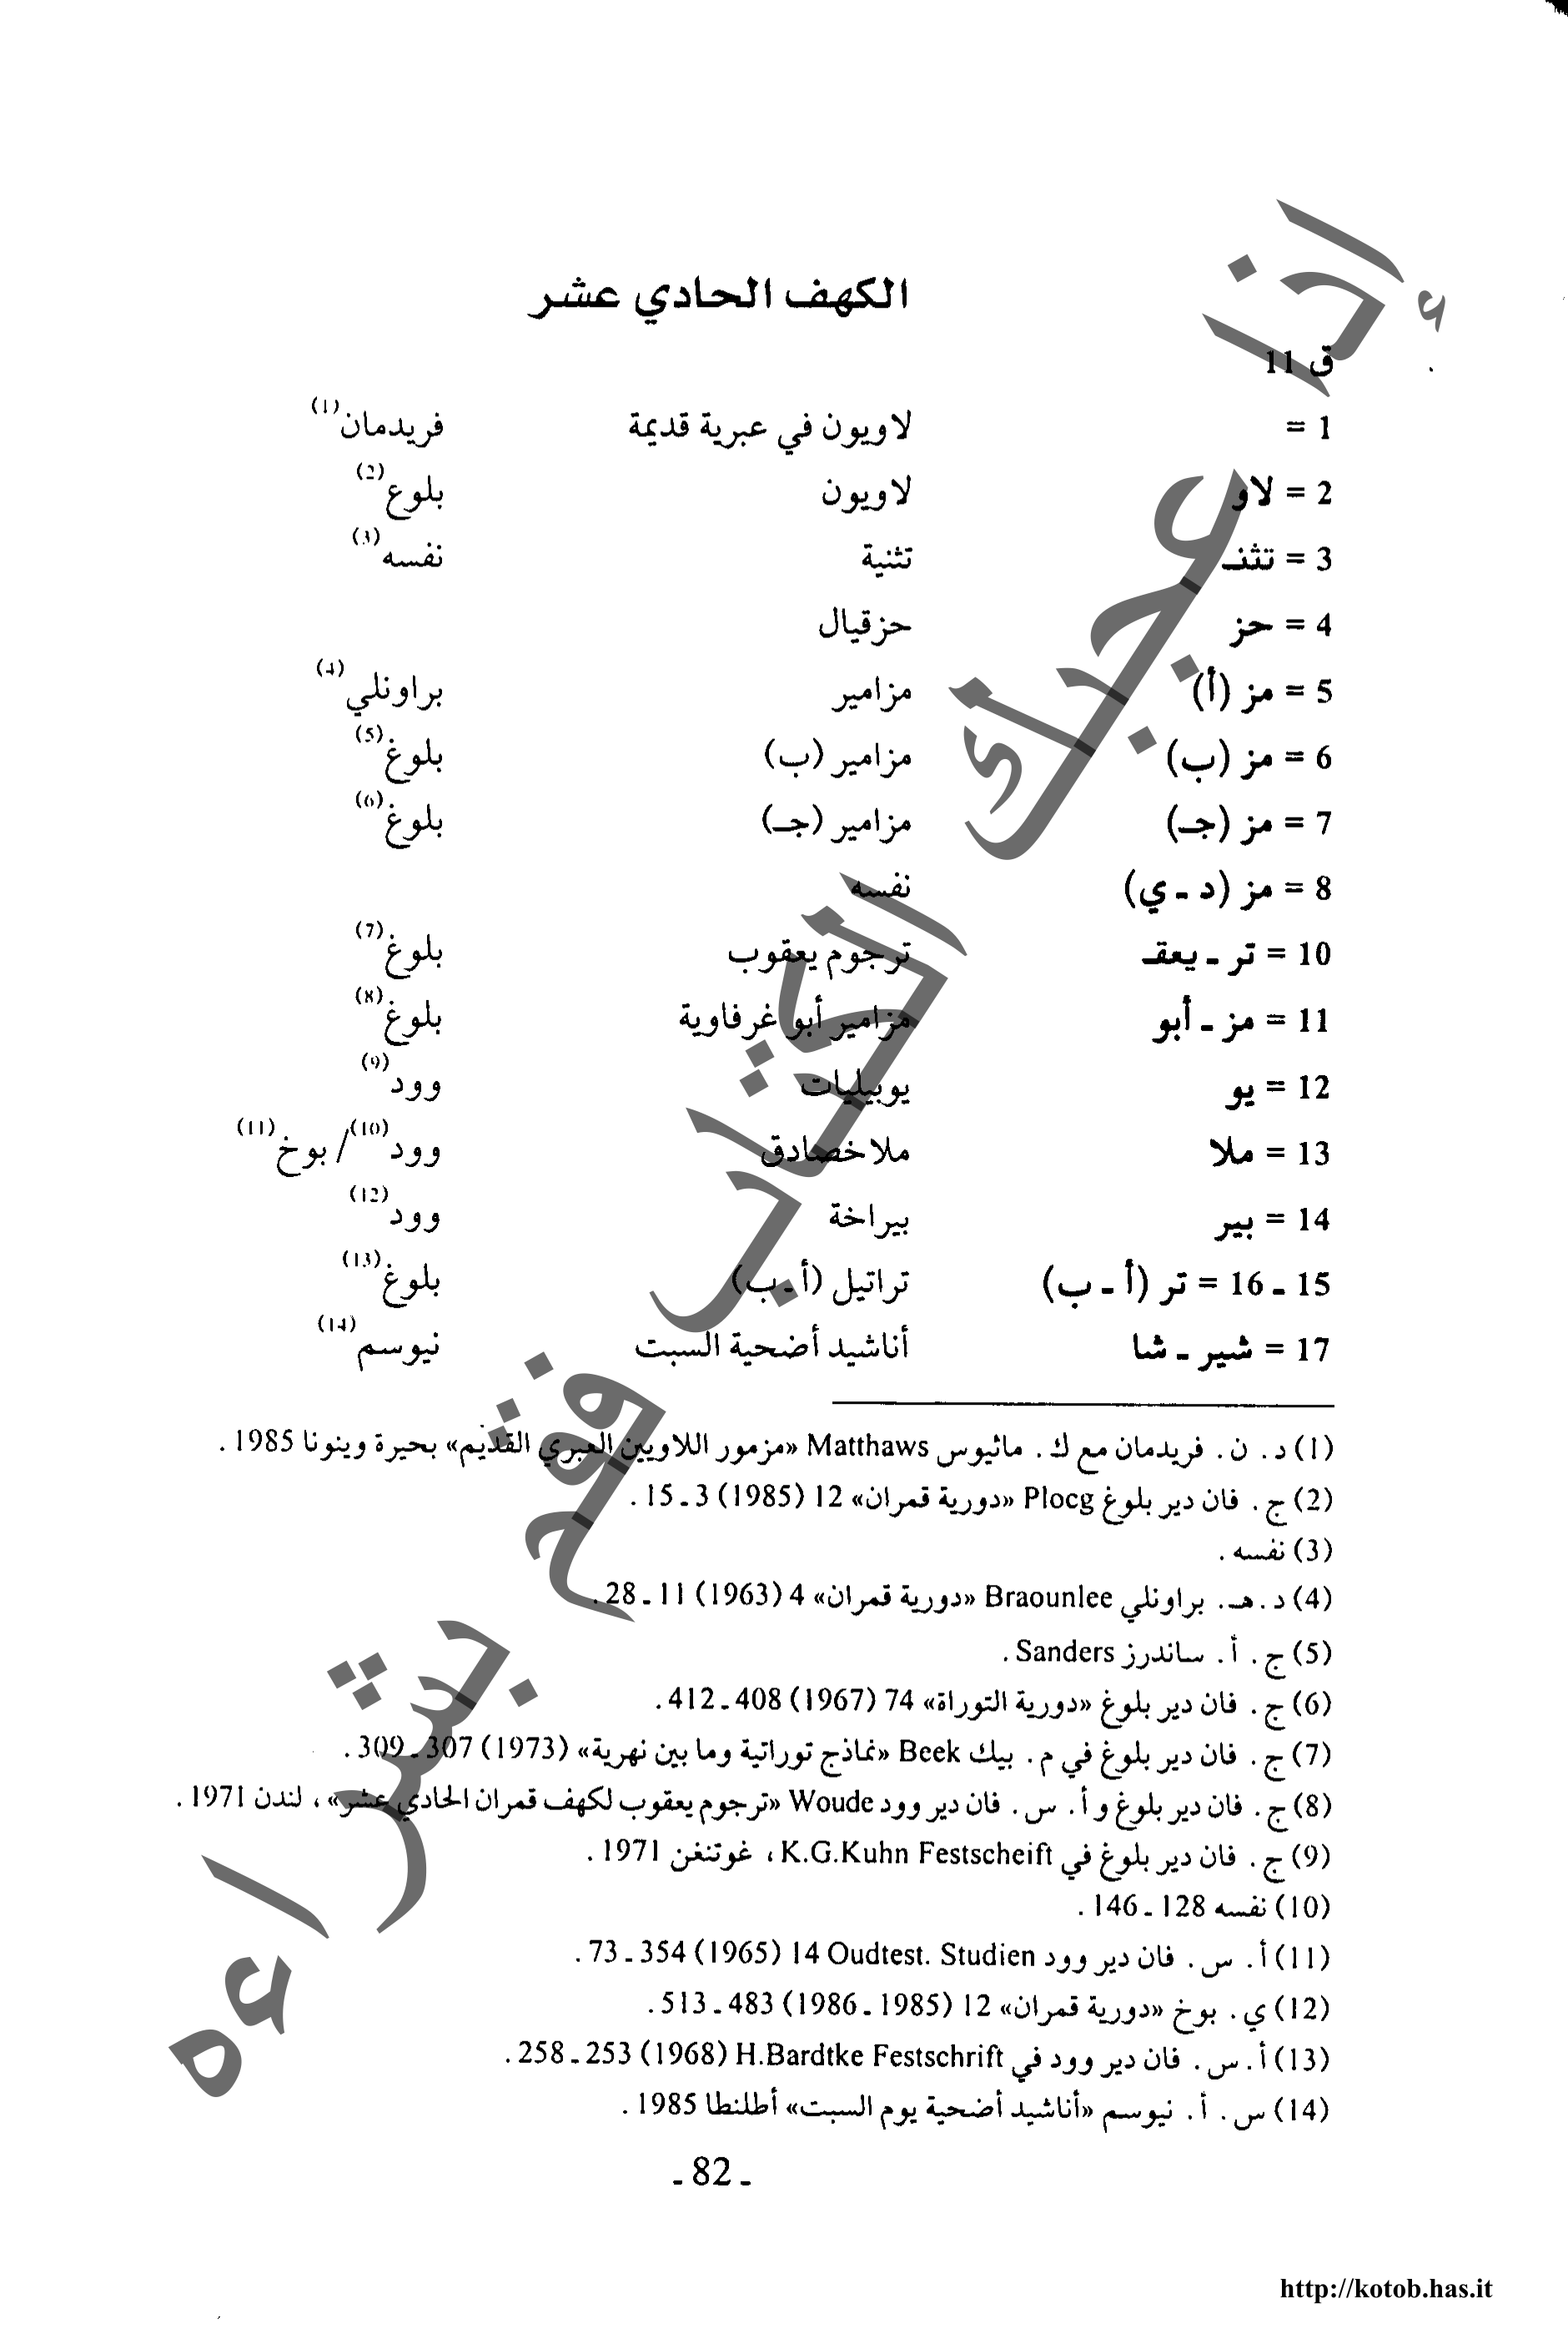 الكهف الحادي عشر
ق 11
1 = لاويون في عبرية قديمة فريدمان(1)
2 = لاو لاويون بلوع(2)
3 = تثنـ تثنية نفسه(3)
4 = حز حزقيال
5 = مز (أ) مزامير براونلي(4)
6 = مز (ب) مزامير (ب) بلوغ(5)
7 = مز (جـ) مزامير (جـ) بلوغ(6)
8 = مز (د ـ ي) نفسه
10 = تر ـ يعقـ ترجوم يعقوب بلوغ(7)
11 = مز ـ أبو مزامير أبو غرفاوية بلوغ(8)
12 = يو يوبيليات وود(9)
13 = ملا ملاخصادق وود(10)/ بوخ(11)
14 = بير بيراخة وود(12)
15 ـ 16 = تر (أ ـ ب) تراتيل (أ ـ ب) بلوغ(13)
17 = شير ـ شا أناشيد أضحية السبت نيوسم(14)
(1) د. ن. فريدمان مع ك. ماثيوس Matthaws «مزمور اللاويين العبري القديم» بحيرة وينونا 1985.
(2) ج. فان دير بلوغ Plocg «دورية قمران» 12 (1985) 3 ـ 15.
(3) نفسه.
(4) د. هـ. براونلي Braounlee «دورية قمران» 4 (1963) 11 ـ 28.
(5) ج. أ. ساندرز Sanders.
(6) ج. فان دير بلوغ «دورية التوراة» 74 (1967) 408 ـ 412.
(7) ج. فان دير بلوغ في م. بيك Beek «نماذج توراتية وما بين نهرية» (1973) 307 ـ 309.
(8) ج. فان دير بلوغ و أ. س. فان دير وود Woude «ترجوم يعقوب لكهف قمران الحادي عشر»، لندن 1971.
(9) ج. فان دير بلوغ في K.G.Kuhn Festscheift، غوتنغن 1971.
(10) نفسه 128 ـ 146.
(11) أ. س. فان دير وود Oudtest. Studien 14 (1965) 354 ـ 73.
(12) ي. بوخ «دورية قمران» 12 (1985 ـ 1986) 483 ـ 513.
(13) أ. س. فان دير وود في H.Bardtke Festschrift (1968) 253 ـ 258.
(14) س. أ. نيوسم «أناشيد أضحية يوم السبت» أطلنطا 1985.
ـ 82 ـ
http://kotob.has.it